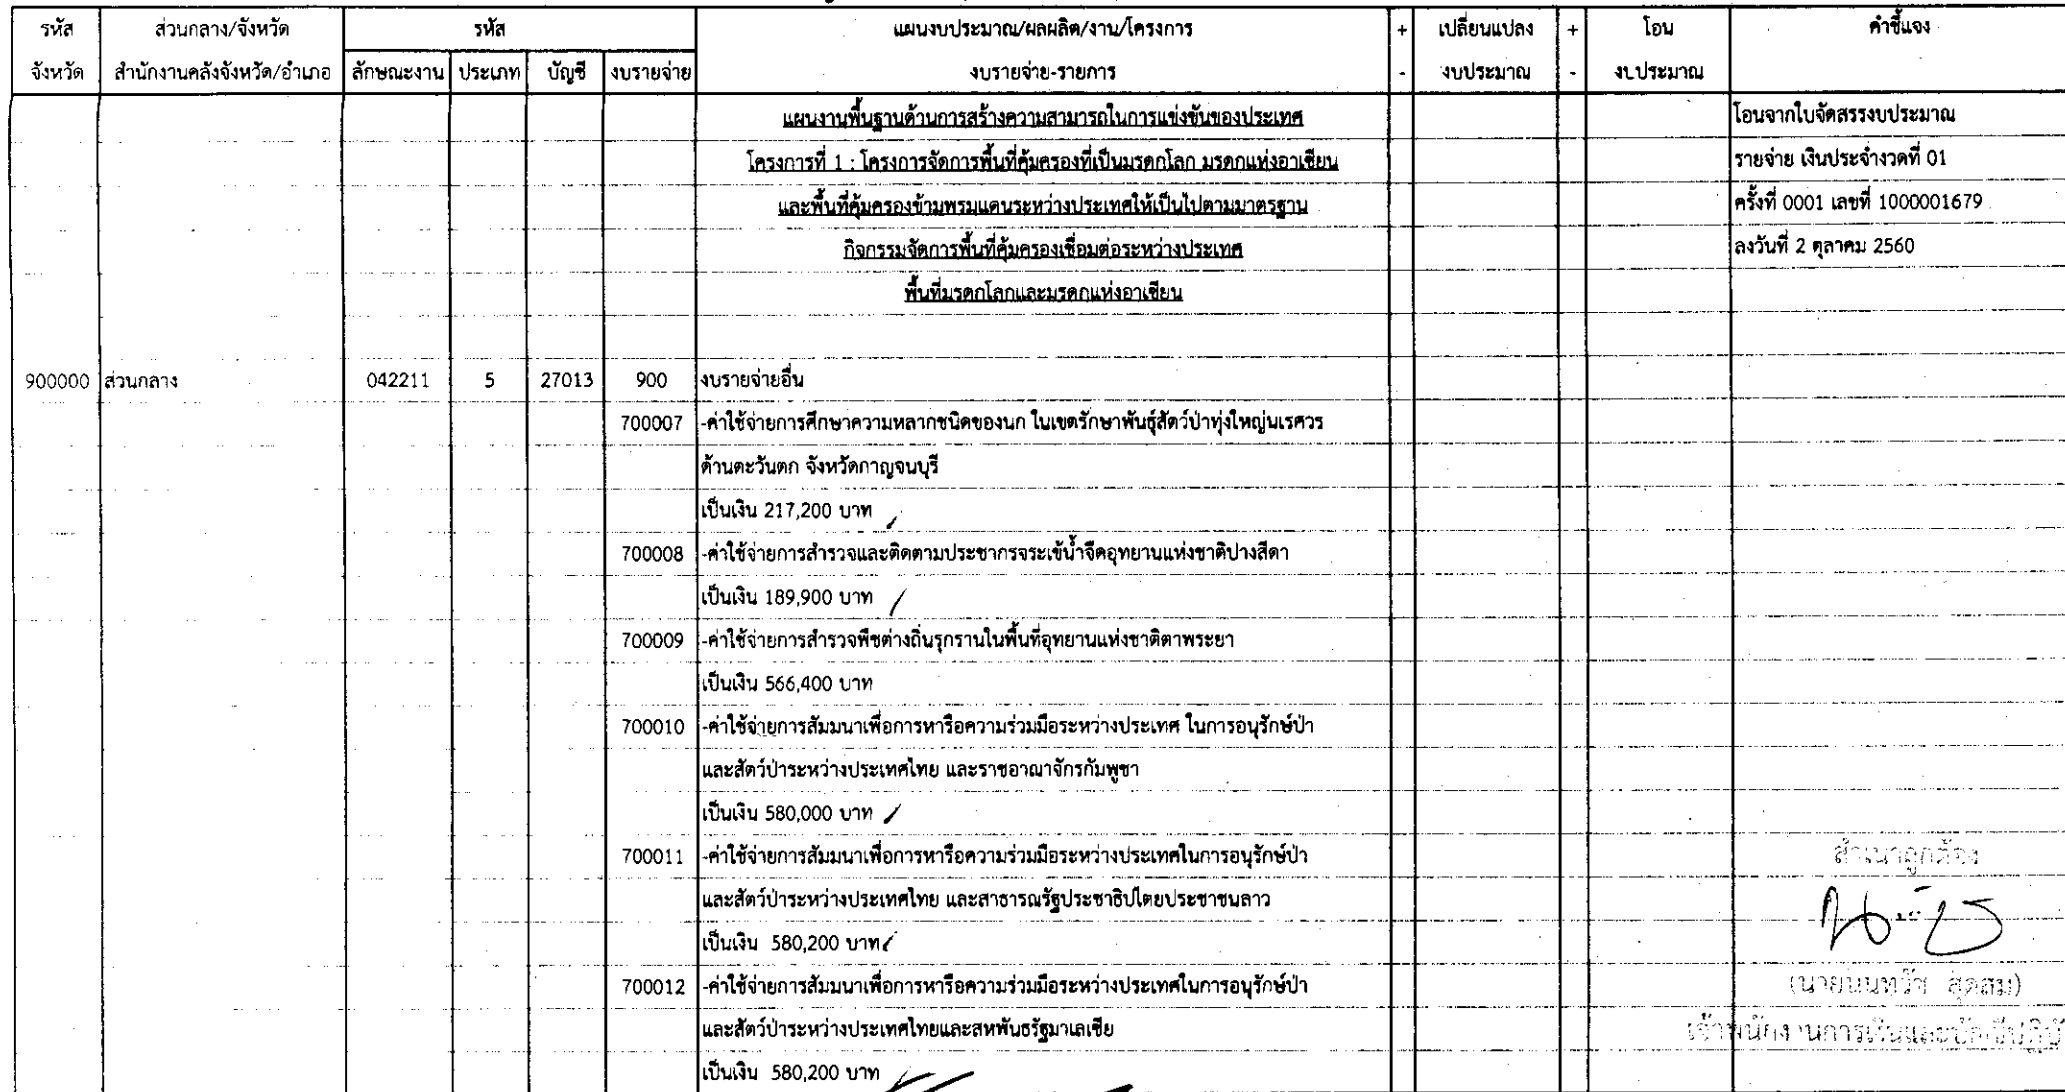 รหัส ส่วนกลาง/จังหวัด รหัส แผนงบประมาณ/ผลผลิต/งาน/โครงการ + เปลี่ยนแปลง + โอน คำชี้แจง
จังหวัด สำนักงานคลังจังหวัด/อำเภอ ลักษณะงาน ประเภท บัญชี งบรายจ่าย งบรายจ่าย-รายการ - งบประมาณ - งบประมาณ
แผนงานพื้นฐานด้านการสร้างความสามารถในการแข่งขันของประเทศ โอนจากใบจัดสรรงบประมาณ
โครงการที่ 1 : โครงการจัดการพื้นที่คุ้มครองที่เป็นมรดกโลก มรดกแห่งอาเซียน รายจ่าย เงินประจำงวดที่ 01
และพื้นที่คุ้มครองข้ามพรมแดนระหว่างประเทศให้เป็นไปตามมาตรฐาน ครั้งที่ 0001 เลขที่ 1000001679
กิจกรรมจัดการพื้นที่คุ้มครองเชื่อมต่อระหว่างประเทศ ลงวันที่ 2 ตุลาคม 2560
พื้นที่มรดกโลกและมรดกแห่งอาเซียน
900000 ส่วนกลาง 042211 5 27013 900 งบรายจ่ายอื่น
700007 -ค่าใช้จ่ายการศึกษาความหลากชนิดของนก ในเขตรักษาพันธุ์สัตว์ป่าทุ่งใหญ่นเรศวร
ด้านตะวันตก จังหวัดกาญจนบุรี
เป็นเงิน 217,200 บาท
700008 -ค่าใช้จ่ายการสำรวจและติดตามประชากรจระเข้น้ำจืดอุทยานแห่งชาติปางสีดา
เป็นเงิน 189,900 บาท
700009 -ค่าใช้จ่ายการสำรวจพืชต่างถิ่นรุกรานในพื้นที่อุทยานแห่งชาติตาพระยา
เป็นเงิน 566,400 บาท
700010 -ค่าใช้จ่ายการสัมมนาเพื่อการหารือความร่วมมือระหว่างประเทศ ในการอนุรักษ์ป่า
และสัตว์ป่าระหว่างประเทศไทย และราชอาณาจักรกัมพูชา
เป็นเงิน 580,000 บาท
700011 -ค่าใช้จ่ายการสัมมนาเพื่อการหารือความร่วมมือระหว่างประเทศในการอนุรักษ์ป่า สำเนาถูกต้อง
และสัตว์ป่าระหว่างประเทศไทย และสาธารณรัฐประชาธิปไตยประชาชนลาว
เป็นเงิน 580,200 บาท
700012 -ค่าใช้จ่ายการสัมมนาเพื่อการหารือความร่วมมือระหว่างประเทศในการอนุรักษ์ป่า (นายนนทวัช สุดสม)
และสัตว์ป่าระหว่างประเทศไทยและสหพันธรัฐมาเลเซีย เจ้าพนักงานการเงินและบัญชีปฏิบั
เป็นเงิน 580,200 บาท